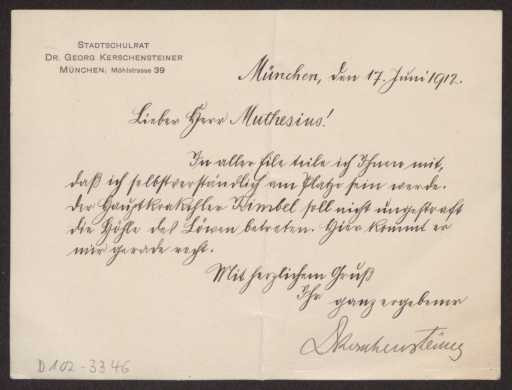 STADTSCHULRAT
DR. GEORG KERSCHENSTEINER
MÜNCHEN, Möhlstrasse 39
München, den 17. Juni 1912.
Lieber Herr Muthesius!
In aller Eile teile ich Ihnen mit,
daß ich selbstverständlich am Platze sein werde.
Der Hauptkrakehler Kimbel soll nicht ungestraft
die Höhle des Löwen betreten. Hier kommt er
mir gerade recht.
Mit herzlichem Gruß
Ihr ganz ergebener
DKerschensteiner
D 102-3346